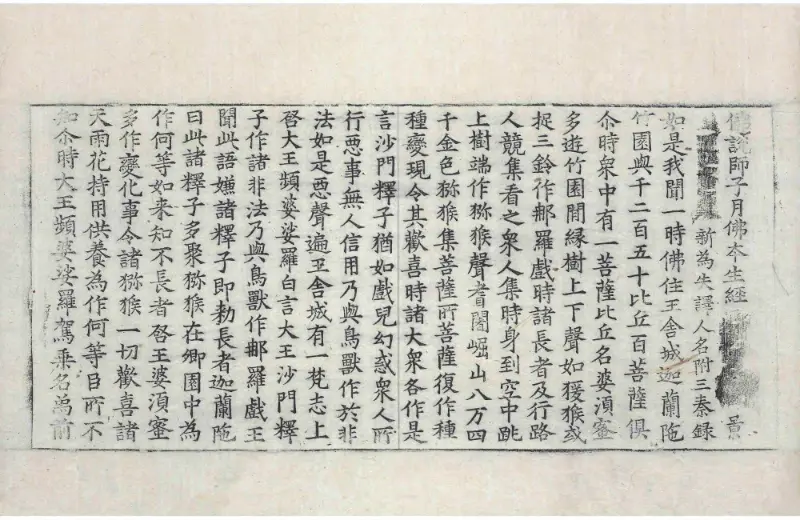 佛說師子月佛本生經 景
新為失譯人名附三秦録
如是我聞一時佛住王舍城迦蘭陁
竹園與千二百五十比丘百菩薩俱
尒時衆中有一菩薩比丘名婆湏蜜
多遊竹園間縁樹上下聲如猨猴或
捉三鈴作那羅戲時諸長者及行路
人競集看之衆人集時身到空中跳
上樹端作猕猴聲耆闍崛山八万四
千金色猕猴集菩薩所菩薩復作種
種變現令其歡喜時諸大衆各作是
言沙門釋子猶如戲兒幻惑衆人所
行惡事無人信用乃與鳥獸作於非
法如是惡聲遍王舍城有一梵志上
啓大王頻婆娑羅白言大王沙門釋
子作諸非法乃與鳥獸作那羅戲王
聞此語嫌諸釋子即勑長者迦蘭陁
曰此諸釋子多聚猕猴在卿園中為
作何等如来知不長者啓王婆湏蜜
多作變化事令諸猕猴一切歡喜諸
天雨花持用供養為作何等臣所不
知尒時大王頻婆娑羅駕乘名爲前